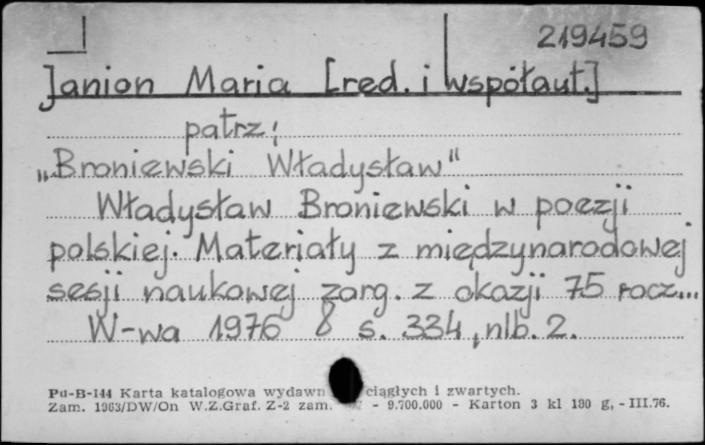 219459
Janion Maria [red. i współaut.]
patrz:
„Broniewski Władysław"
Władysław Broniewski w poezji
polskiej. Materiały z międzynarodowej
sesji naukowej zorg. z okazji 75 rocz...
W-wa 1976 8 s. 334, nlb. 2.
Pu-B-144 Karta katalogowa wydawn ciągłych i zwartych.
Zam. 1963/DW/On W.Z.Graf. Z-2 zam. - 9.700.000 - Karton 3 kl 180 g, - III.76.